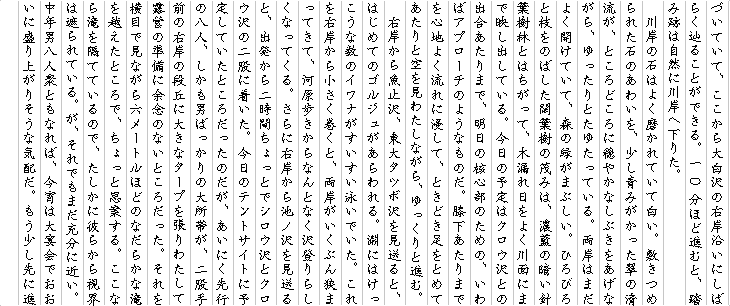 づいていて、ここから大白沢の右岸沿いにしば
らく辿ることができる。一〇分ほど進むと、踏
み跡は自然に川岸へ下りた。
　川岸の石はよく磨かれていて白い。敷きつめ
られた石のあわいを、少し青みがかった翠の清
流が、ところどころに穏やかなしぶきをあげな
がら、ゆったりとたゆたっている。両岸はまだ
よく開けていて、森の緑がまぶしい。ひろびろ
と枝をのばした闊葉樹の茂みは、濃藍の暗い針
葉樹林とはちがって、木漏れ日をよく川面にま
で映し出している。今日の予定はクロウ沢との
出合あたりまで、明日の核心部のための、いわ
ばアプローチのようなものだ。膝下あたりまで
を心地よく流れに浸して、ときどき足をとめて
あたりと空を見わたしながら、ゆっくりと進む。
　右岸から魚止沢、東大タツボ沢を見送ると、
はじめてのゴルジュがあらわれる。淵にはけっ
こうな数のイワナがすいすい泳いでいた。これ
を右岸から小さく巻くと、両岸がいくぶん狭ま
ってきて、河原歩きからなんとなく沢登りらし
くなってくる。さらに右岸から池ノ沢を見送る
と、出発から二時間ちょっとでシロウ沢とクロ
ウ沢の二股に着いた。今日のテントサイトに予
定していたところだったのだが、あいにく先行
の八人、しかも男ばっかりの大所帯が、二股手
前の右岸の段丘に大きなタープを張りわたして
露営の準備に余念のないところだった。それを
横目で見ながら六メートルほどのなだらかな滝
を越えたところで、ちょっと思案する。ここな
ら滝を隔てているので、たしかに彼らから視界
は遮られている。が、それでもまだ充分に近い。
中年男八人衆ともなれば、今宵は大宴会でおお
いに盛り上がりそうな気配だ。もう少し先に進